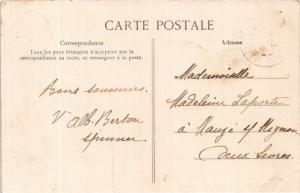 CARTE POSTALE
Correspondance
Tous les pays étrangers n'acceptent pas la
correspondance au recto, se renseigner à la poste.
Adresse
Bons souvenirs.
V. Alb. Berton
Mademoiselle
Madeleine Laporte
à Mauzé s/ Mignon
Deux Sèvres.